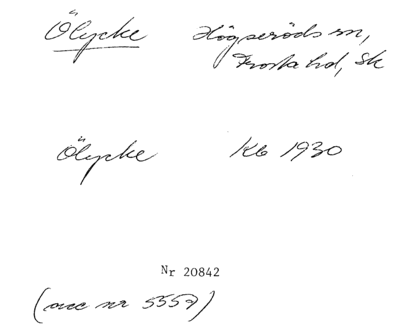 Ölycke Högseröds sn,
Frosta hd, Sk
Ölycke Kb 1930
Nr 20842
(acc nr 5557)